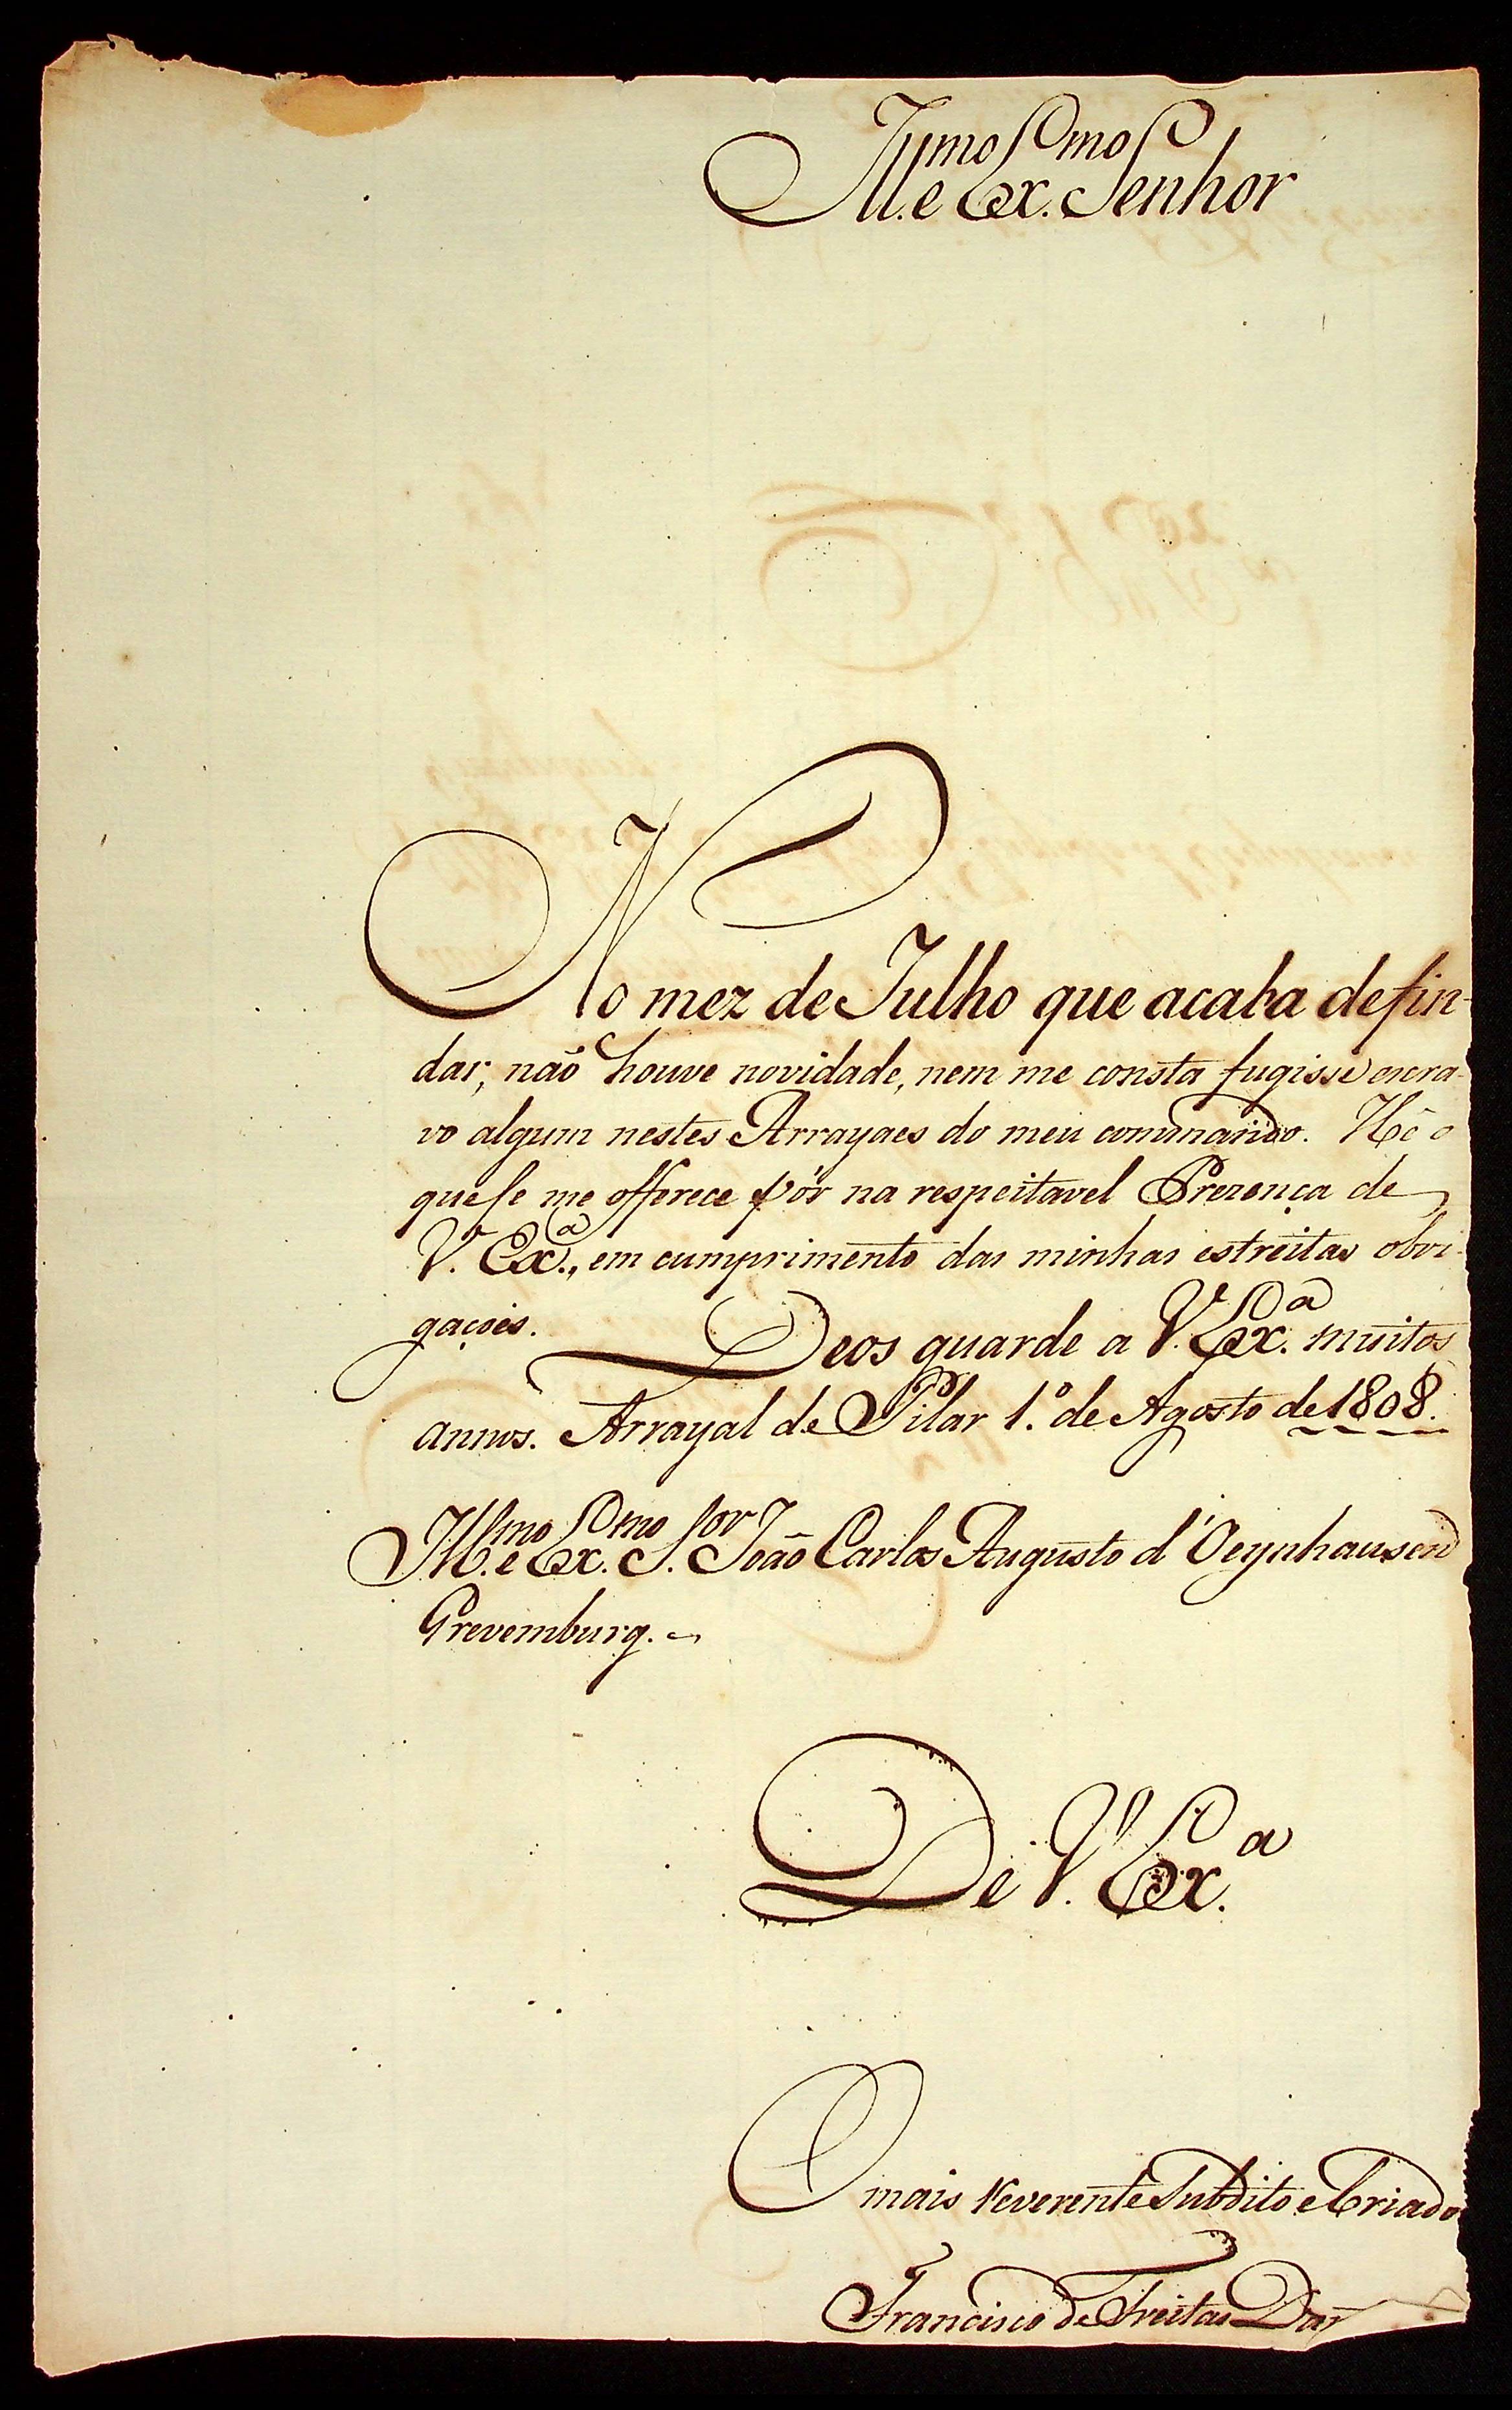 Ill.mo e Ex.mo Senhor
No mez de Julho que acaba de fin-
dar, não houve novidade, nem me consta fugisse escra-
vo algum nestes Arrayaes do meu commando. Hé o
que se me offerece pôr na respeitavel Prezença de
V. Ex.a, em cumprimento das minhas estreitas obri-
gaçoẽs. Deos guarde a V. Ex.a muitos
annos. Arrayal de Pilar 1.º de Agosto de 1808.
Ill.mo e Ex.mo S.or João Carlos Augusto d'Oeynhausen
Grevemburg.
De V. Ex.a
O mais reverente Subdito e Criado
Francisco de Freitas